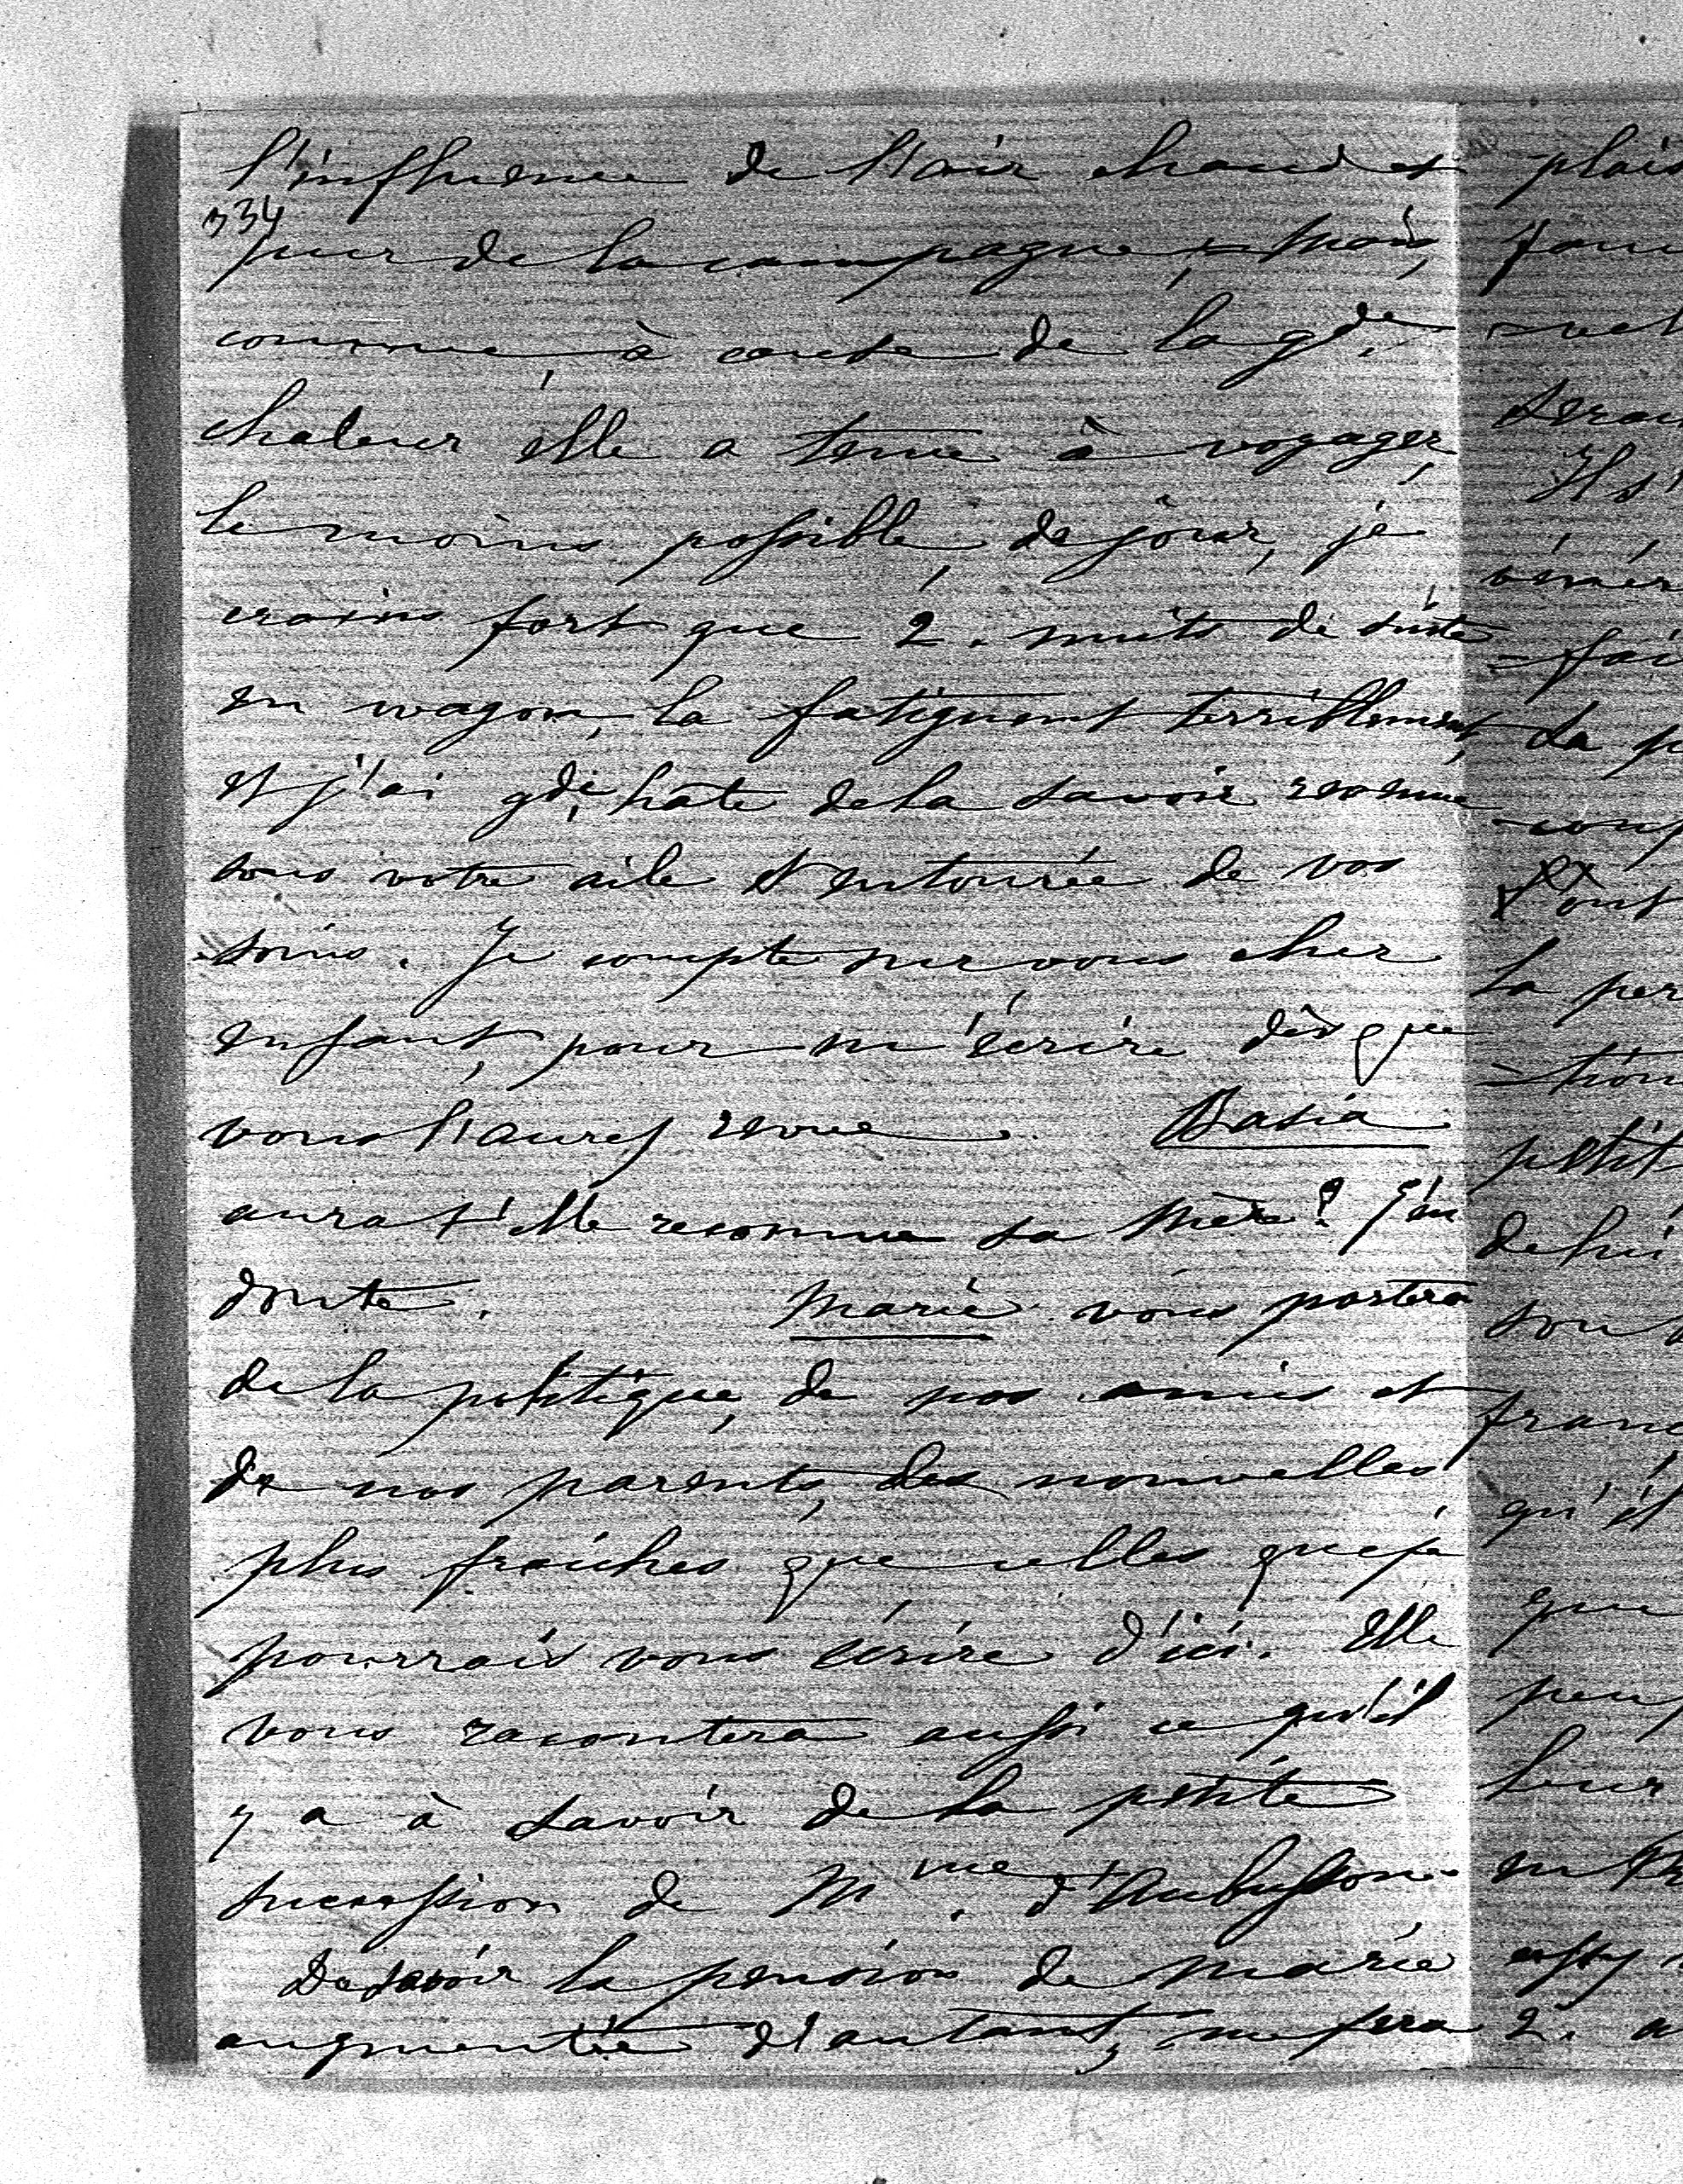 l'influence de l'air chaud et
334
pur de la campagne; – Mais,
comme à cause de la gde
chaleur, elle a tenu à voyager
le moins possible, de jour, je
crains fort que 2. nuits de suite
en wagon, la fatiguent terriblement,
et j'ai gde hâte de la savoir revenue
sous votre aile et entourée de vos
soins. Je compte sur vous cher
enfant, pour m'écrire dès que
vous l'aurez revue. Basia
aurat'elle reconnu sa Mère? J'en
doute. Marie vous portera
de la politique, de nos amis et
de nos parents, des nouvelles
plus fraîches que celles que je
pourrais vous écrire d'ici. Elle
vous racontera aussi ce qu'il
y a à savoir de la petite
succession de Mme. d'Aubusson.
De savoir la pension de Marie
augmentée d'autant, me fera
plais
vel
serai
Il s'
fai
la p
la per
petit
de lui
son
franc
qu'il
que
peu
leur
2.